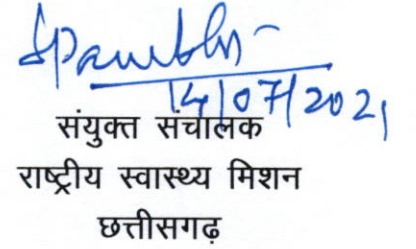 14/07/2021
संयुक्त संचालक
राष्ट्रीय स्वास्थ्य मिशन
छत्तीसगढ़